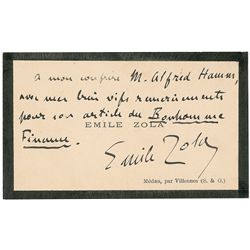 a mon confrère M. Alfred
avec mes bien vifs remerciements
pour son article du Bonhomme
EMILE ZOLA
Finance.
Emile Zola
Médan, par Villennes (S. & O.)